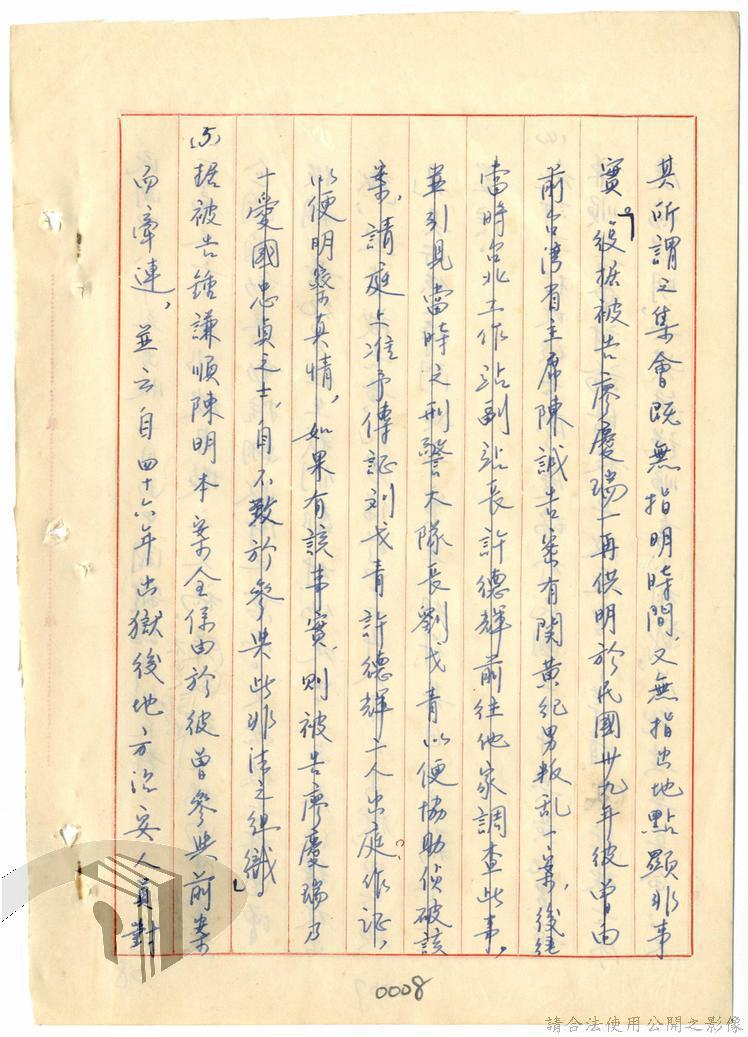 其所謂之集會既無指明時間,又無指出地點顯非事
實。「復据被告廖慶瑞一再供明於民國卅九年彼曾由
前台湾省主席陳誠告案有関黄紀男叛乱一案,後經
當時台北工作站副站長許德輝前往他家調查此事,
並引見當時之刑警大隊長劉戈青以便協助偵破該
案,請庭上准予傳証刘戈青許德輝二人出庭作証,
以便明察真情,如果有該事實,則被告廖慶瑞乃
十愛國忠貞之士,自不致於參與此非法之組織。」
(5)据被告鍾謙順陳明本案全係由於彼曾參與前案
而牽連,並云自四十六年出獄後地方治安人員對
0008
請合法使用公開之影像